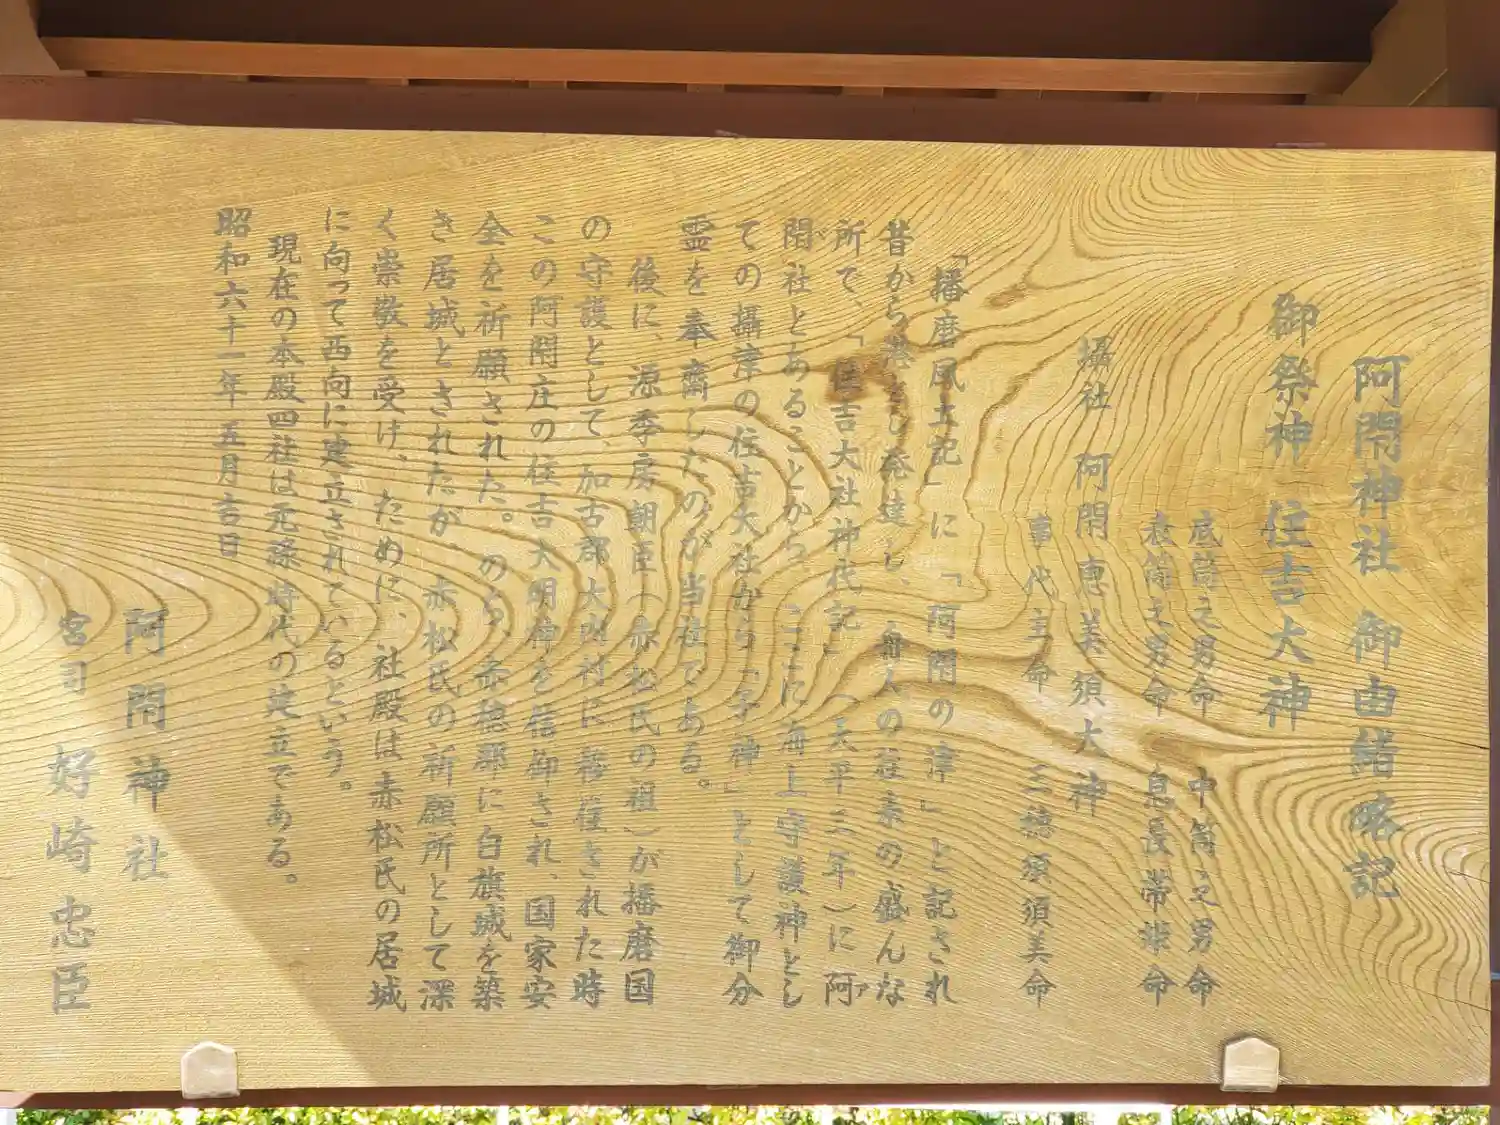 阿閇神社 御由緒略記
御祭神 住吉大神
底筒之男命 中筒之男命
表筒之男命 息長帯姫命
攝社 阿閇恵美須大神
事代主命 三穂須須美命
「播磨風土記」に「阿閇の津」と記され
昔から港として発達し、舟人の往来の盛んな
所で、「住吉大社神代記」(天平三年)に阿
閇社とあることから、ここに海上守護神とし
ての攝津の住吉大社から「子神」として御分
霊を奉齋したのが当社である。
後に、源季房朝臣(赤松氏の祖)が播磨国
の守護として、加古郡大内村に移住された時
この阿閇庄の住吉大明神を信仰され、国家安
全を祈願された。のち、赤穂郡に白旗城を築
き居城とされたが、赤松氏の祈願所として深
く崇敬を受け、ために、社殿は赤松氏の居城
に向って西向に建立されているという。
現在の本殿四社は元禄時代の建立である。
昭和六十一年 五月吉日
阿閇神社
宮司 好崎忠臣